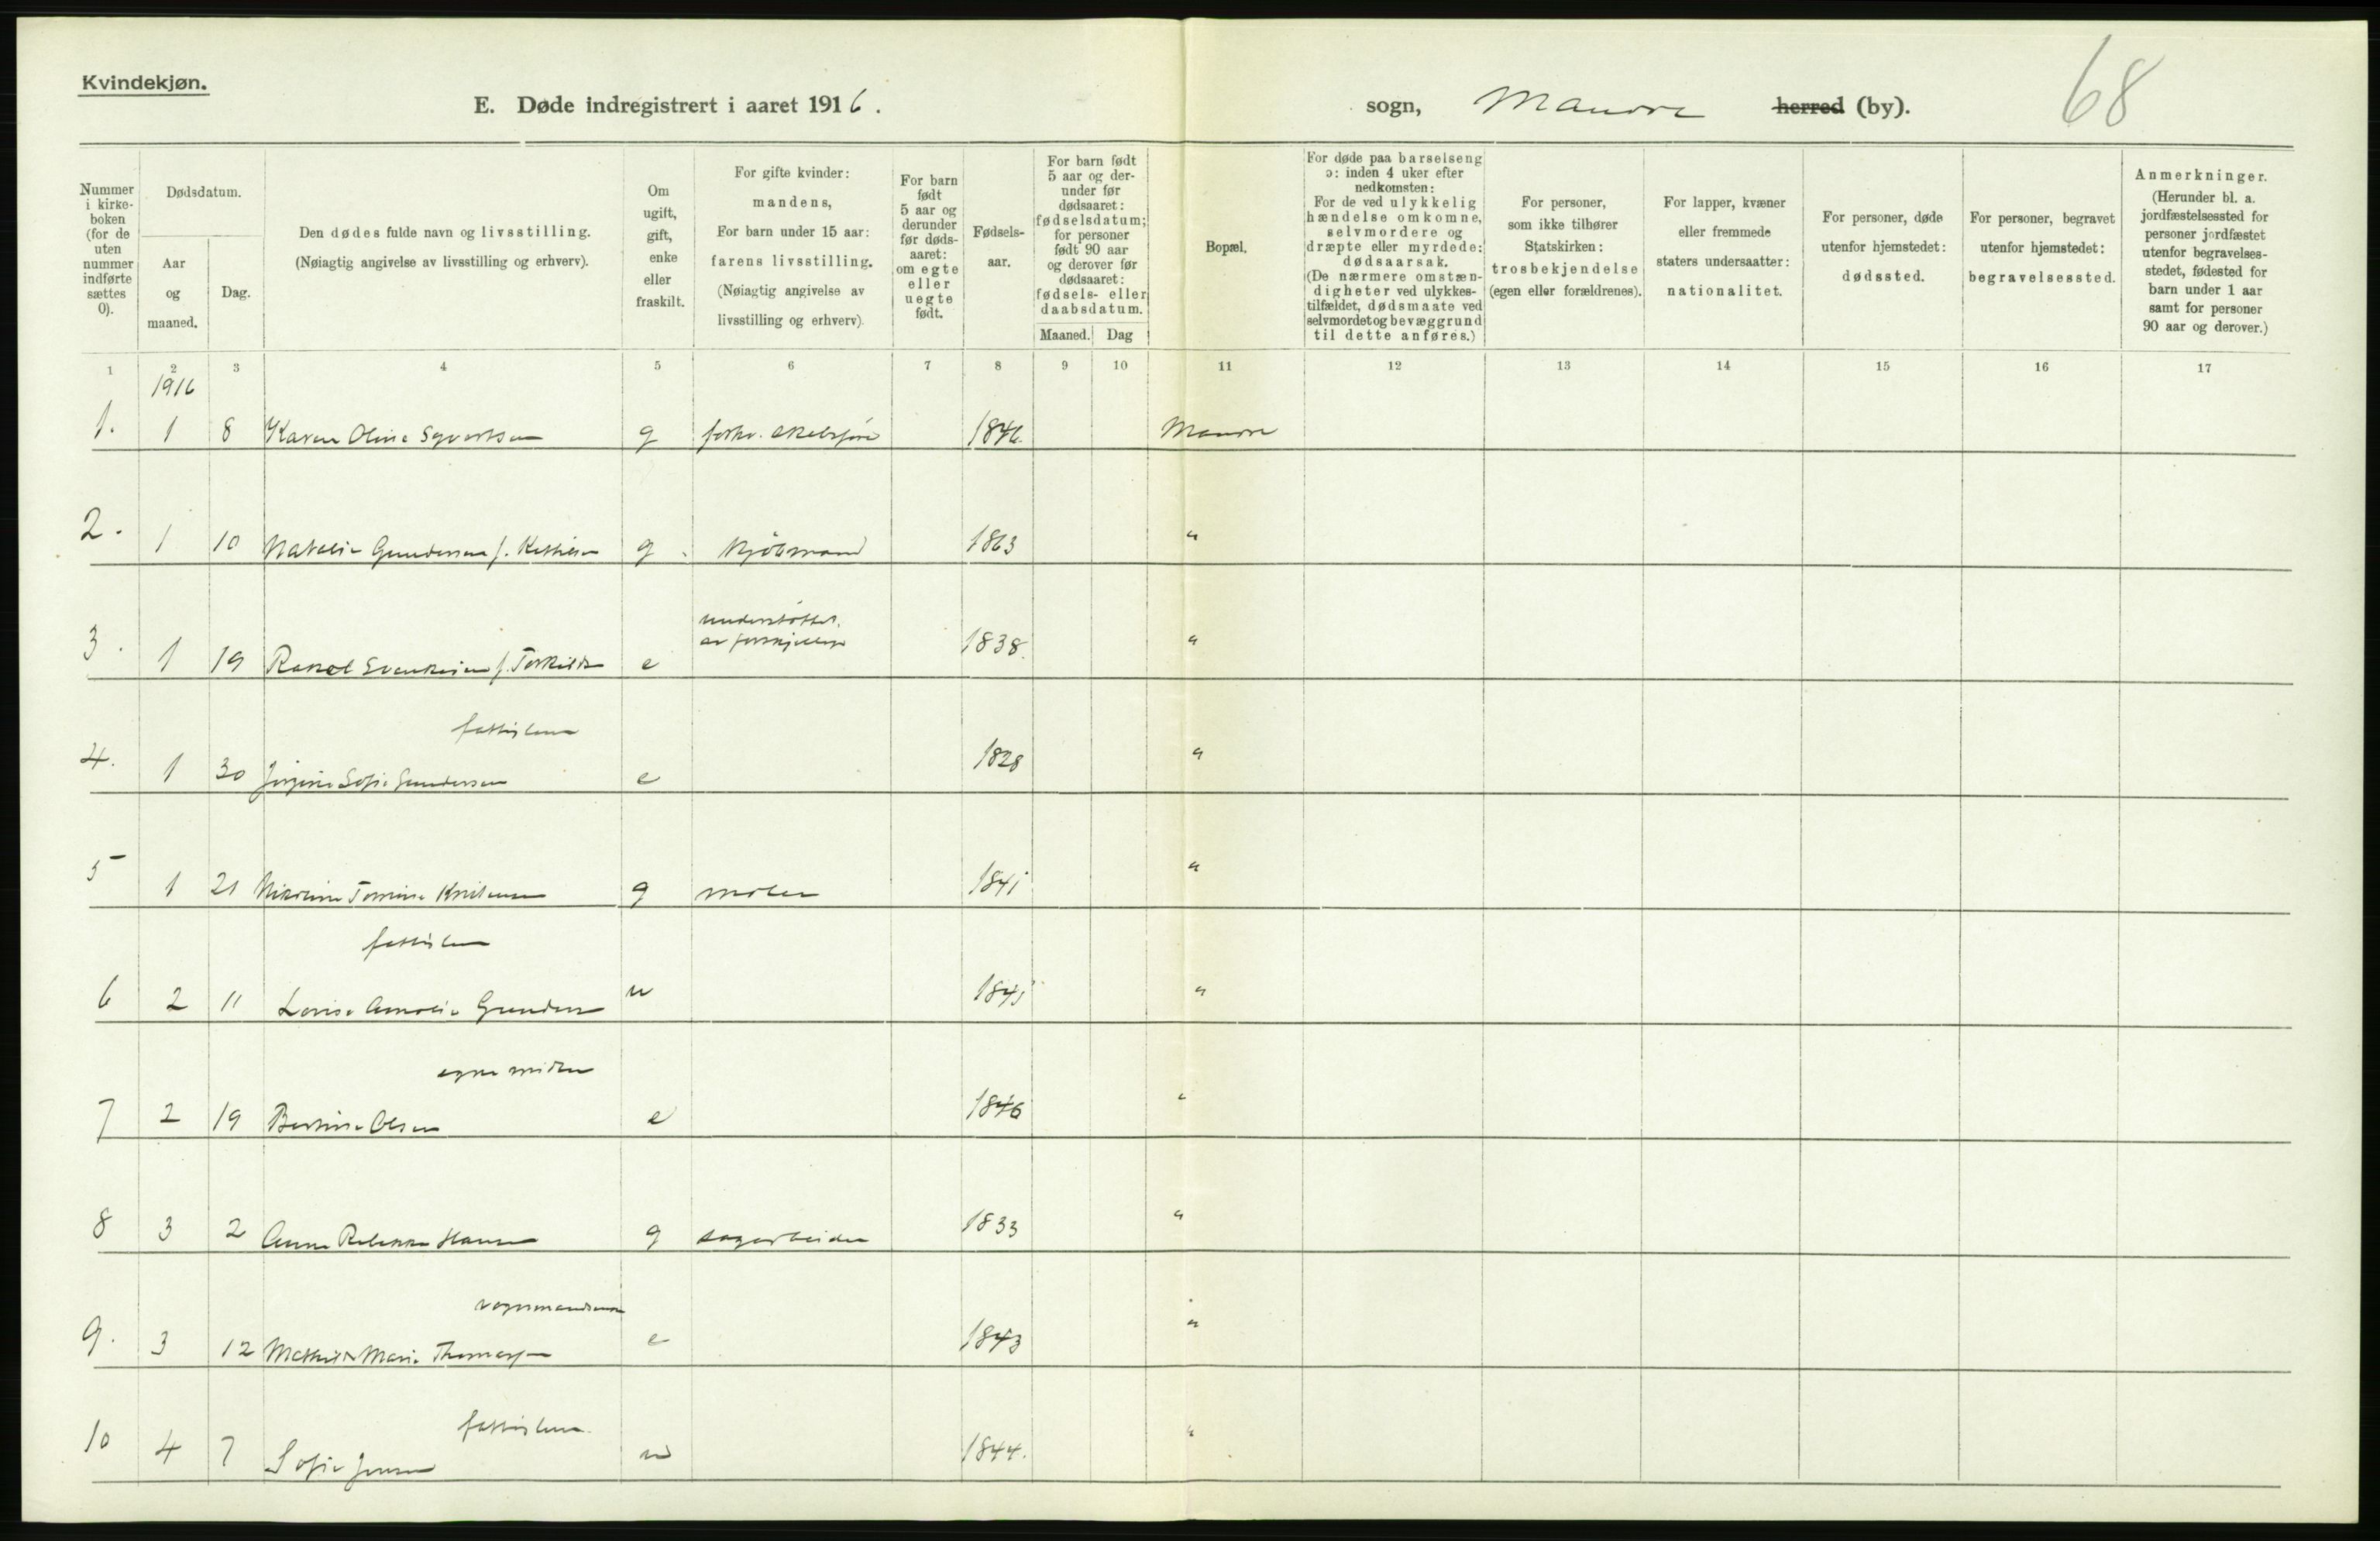 Kvindekjøn.
E. Døde indregistrert i aaret 1916.
sogn, herred (by).
68
Nummer i kirke-boken (for de uten nummer indførte sættes 0).
Dødsdatum.
Aar og maaned.
Dag.
Den dødes fulde navn og livsstilling.
(Nøiagtig angivelse av livsstilling og erhverv).
Om ugift, gift, enke eller fraskilt.
For gifte kvinder: mandens,
For barn under 15 aar: farens livsstilling.
(Nøiagtig angivelse av livsstilling og erhverv).
For barn født 5 aar og derunder før døds-aaret: om egte eller uegte født.
Fødsels-aar.
For barn født 5 aar og der-under før dødsaaret: fødselsdatum; for personer født 90 aar og derover før dødsaaret: fødsels- eller daabsdatum.
Maaned.
Dag
Bopæl.
For døde paa barselseng ɔ: inden 4 uker efter nedkomsten:
For de ved ulykkelig hændelse omkomne, selvmordere og dræpte eller myrdede: dødsaarsak.
(De nærmere omstæn-digheter ved ulykkes-tilfældet, dødsmaate ved selvmordet og bevæggrund til dette anføres.)
For personer, som ikke tilhører Statskirken: trosbekjendelse (egen eller forældrenes).
For lapper, kvæner eller fremmede staters undersaatter: nationalitet.
For personer, døde utenfor hjemstedet: dødssted.
For personer, begravet utenfor hjemstedet: begravelsessted.
Anmerkninger.
(Herunder bl. a. jordfæstelsessted for personer jordfæstet utenfor begravelses-stedet, fødested for barn under 1 aar samt for personer 90 aar og derover.)
1 2 3 4 5 6 7 8 9 10 11 12 13 14 15 16 17
1916
1. 1 8 Karen Oline Syvertsen g 1846
2. 1 10 Natalie Gundersen f. g kjøbmand 1863 "
understøttet
3. 1 19 Rakel f. e 1838. "
4. 1 30 Sofie Gundersen e 1828 "
5 1 21 g maler 1841 "
6 2 11 Lovise Amalie u "
egne midler
7 2 19 Olsen e 1846 "
8 3 2 Anne Rebekka Hansen g sagarbeider 1833 "
9. 3 12 Mathilde Marie e 1843 "
10 4 7 Sofie Jensen u 1844. "